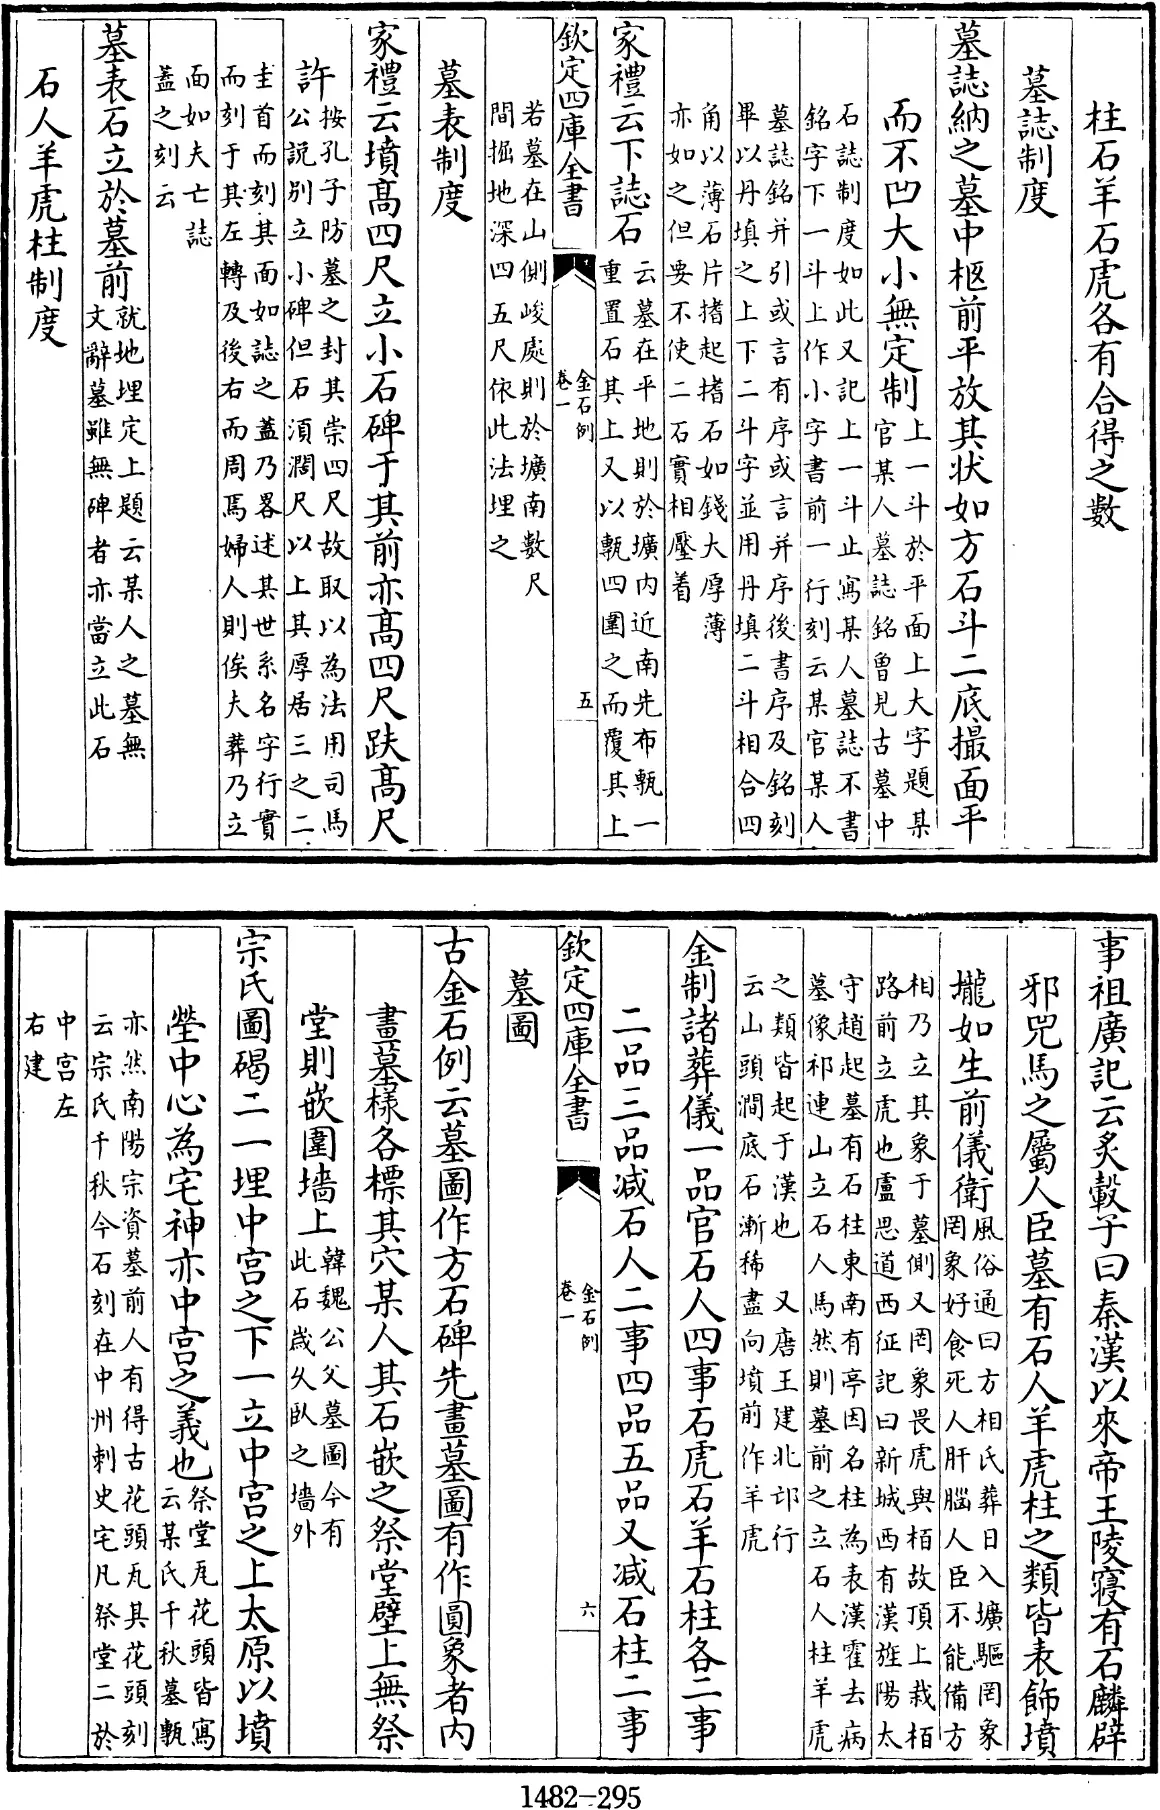 柱石羊石虎各有合得之數
墓誌制度
墓誌納之墓中柩前平放其狀如方石斗二底撮面平
而不凹大小無定制上一斗於平面上大字題某官某人墓誌銘曾見古墓中
石誌制度如此又記上一斗止寫某人墓誌不書
銘字下一斗上作小字書前一行刻云某官某人
墓誌銘并引或言有序或言并序後書序及銘刻
畢以丹填之上下二斗字並用丹填二斗相合四
角以薄石片揩起揩石如錢大厚薄
亦如之但要不使二石實相壓着
家禮云下誌石云墓在平地則於壙内近南先布甎一重置石其上又以甎四圍之而覆其上
欽定四庫全書
金石例
卷一
五
若墓在山側峻處則於壙南數尺
間掘地深四五尺依此法埋之
墓表制度
家禮云墳髙四尺立小石碑于其前亦髙四尺趺髙尺
許按孔子防墓之封其崇四尺故取以為法用司馬公説别立小碑但石須濶尺以上其厚居三之二
圭首而刻其面如誌之蓋乃畧述其世系名字行實
而刻于其左轉及後右而周焉婦人則俟夫葬乃立
面如夫亡誌
蓋之刻云
墓表石立於墓前就地埋定上題云某人之墓無文辭墓雖無碑者亦當立此石
石人羊虎柱制度
事祖廣記云炙轂子曰秦漢以來帝王陵寢有石麟辟
邪兕馬之屬人臣墓有石人羊虎柱之類皆表飾墳
壠如生前儀衛風俗通曰方相氏葬日入壙驅罔象罔象好食死人肝腦人臣不能備方
相乃立其象于墓側又罔象畏虎與栢故頂上栽栢
路前立虎也盧思道西征記曰新城西有漢旌陽太
守趙起墓有石柱東南有亭因名柱為表漢霍去病
墓像祁連山立石人馬然則墓前之立石人柱羊虎
之類皆起于漢也　又唐王建北邙行
云山頭澗底石漸稀盡向墳前作羊虎
金制諸葬儀一品官石人四事石虎石羊石柱各二事
二品三品减石人二事四品五品又减石柱二事
欽定四庫全書
金石例
卷一
六
墓圖
古金石例云墓圖作方石碑先畫墓圖有作圓象者内
畫墓樣各標其穴某人其石嵌之祭堂壁上無祭
堂則嵌圍墻上韓魏公父墓圖今有此石歲久臥之墻外
宗氏圖碣二一埋中宫之下一立中宫之上太原以墳
塋中心為宅神亦中宫之義也祭堂瓦花頭皆寫云某氏千秋墓甎
亦然南陽宗資墓前人有得古花頭瓦其花頭刻
云宗氏千秋今石刻在中州刺史宅凡祭堂二於
中宫左
右建
1482-295